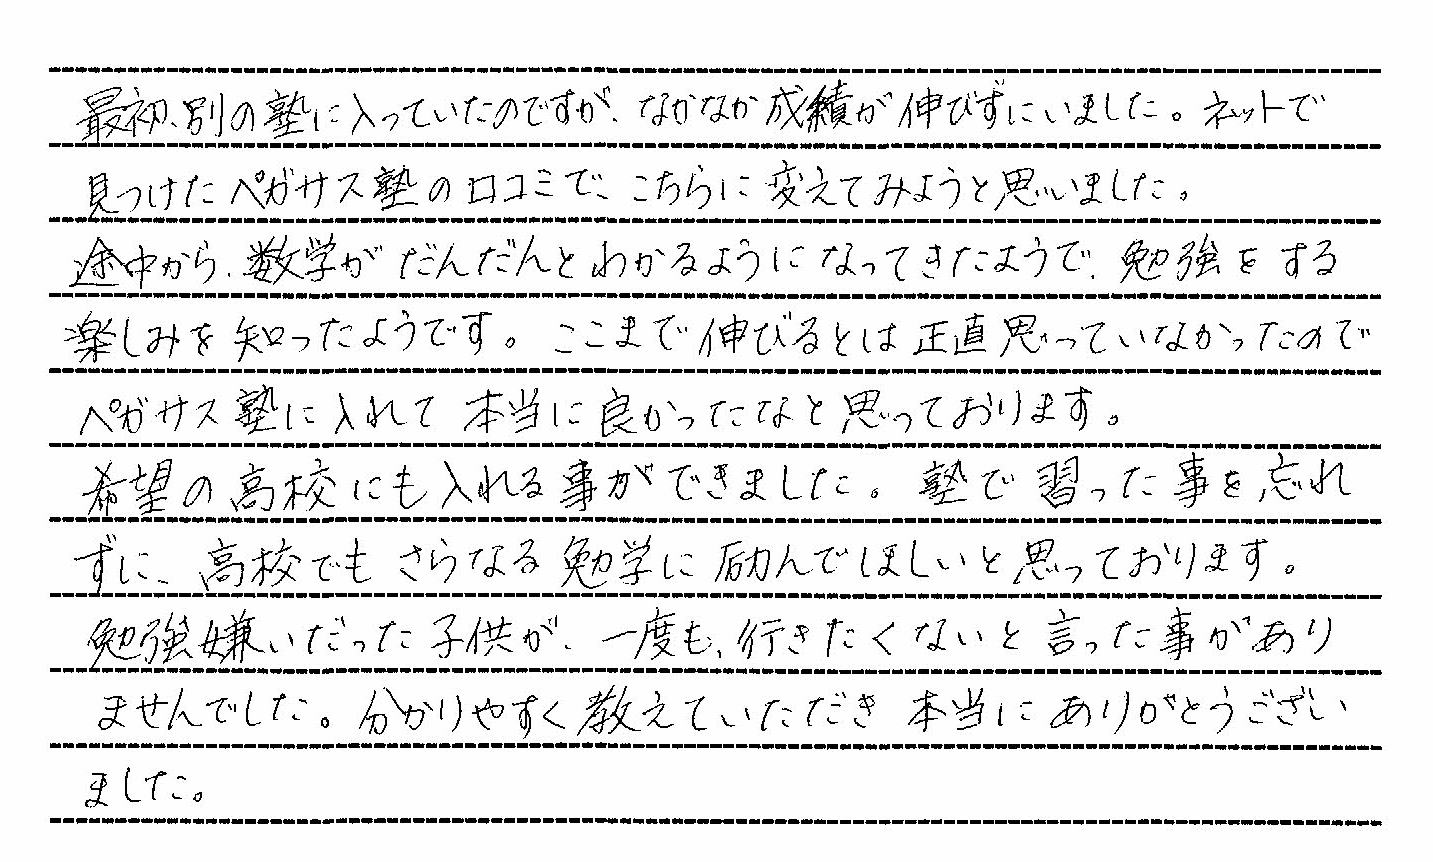 最初、別の塾に入っていたのですが、なかなか成績が伸びずにいました。ネットで
見つけたペガサス塾の口コミで、こちらに変えてみようと思いました。
途中から、数学がだんだんとわかるようになってきたようで、勉強をする
楽しみを知ったようです。ここまで伸びるとは正直思っていなかったので
ペガサス塾に入れて本当に良かったなと思っております。
希望の高校にも入れる事ができました。塾で習った事を、忘れ
ずに、高校でもさらなる勉学に励んでほしいと思っております。
勉強嫌いだった子供が、一度も、行きたくないと言った事があり
ませんでした。分かりやすく教えていただき本当にありがとうござい
ました。